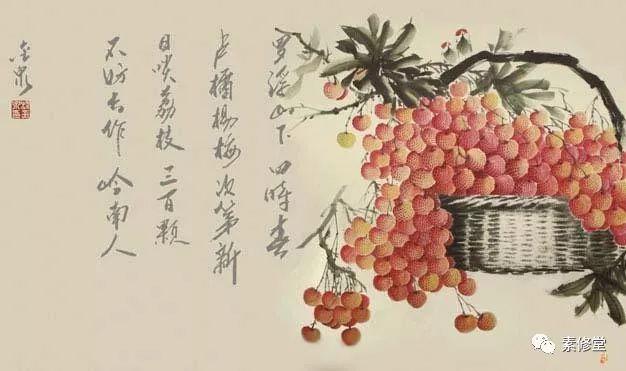 罗浮山下四時春
卢橘杨梅次第新
日啖荔枝三百颗
不妨长作岭南人
金泉
素修堂